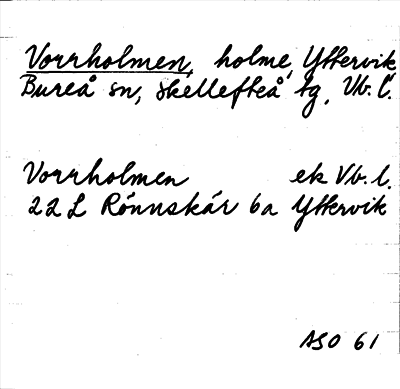 Vorrholmen, holme, Yttervik
Bureå sn, Skellefteå tg, Vb. l.
Vorrholmen ek Vb. l.
22 L Rönnskär 6a Yttervik
ASO 61